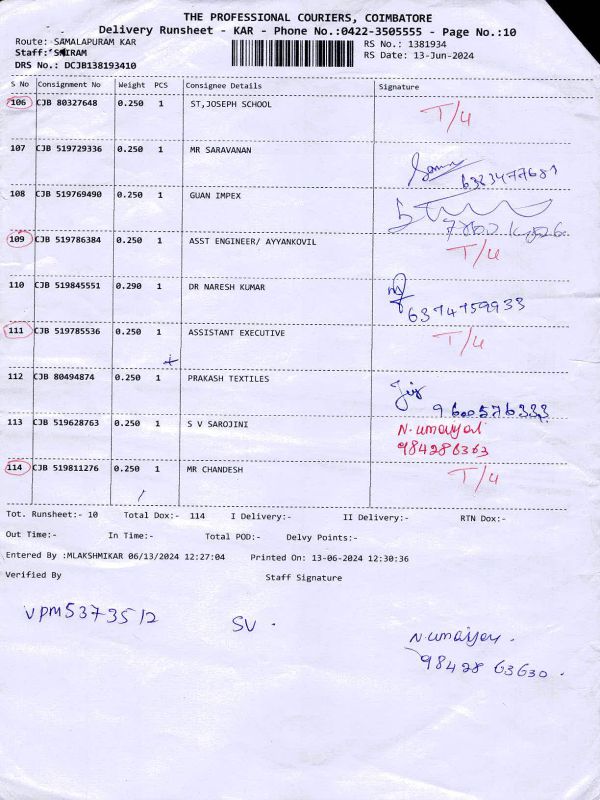 THE PROFESSIONAL COURIERS, COIMBATORE
Delivery Runsheet - KAR - Phone No.:0422-3505555 - Page No.:10
Route: SAMALAPURAM KAR RS No.: 1381934
Staff: SRIRAM RS Date: 13-Jun-2024
DRS No.: DCJB138193410
S No Consignment No Weight PCS Consignee Details Signature
106 CJB 80327648 0.250 1 ST,JOSEPH SCHOOL T/4
107 CJB 519729336 0.250 1 MR SARAVANAN 6383477681
108 CJB 519769490 0.250 1 GUAN IMPEX
109 CJB 519786384 0.250 1 ASST ENGINEER/ AYYANKOVIL T/4
110 CJB 519845551 0.290 1 DR NARESH KUMAR 6374759933
111 CJB 519785536 0.250 1 ASSISTANT EXECUTIVE T/4
112 CJB 80494874 0.250 1 PRAKASH TEXTILES 9600576333
113 CJB 519628763 0.250 1 S V SAROJINI N.umaiyal
984286363
114 CJB 519811276 0.250 1 MR CHANDESH T/4
Tot. Runsheet:- 10 Total Dox:- 114 I Delivery:- II Delivery:- RTN Dox:-
Out Time:- In Time:- Total POD:- Delvy Points:-
Entered By :MLAKSHMIKAR 06/13/2024 12:27:04 Printed On: 13-06-2024 12:30:36
Verified By Staff Signature
VPM5373512 SV. N.umaiyal.
98428 63630.